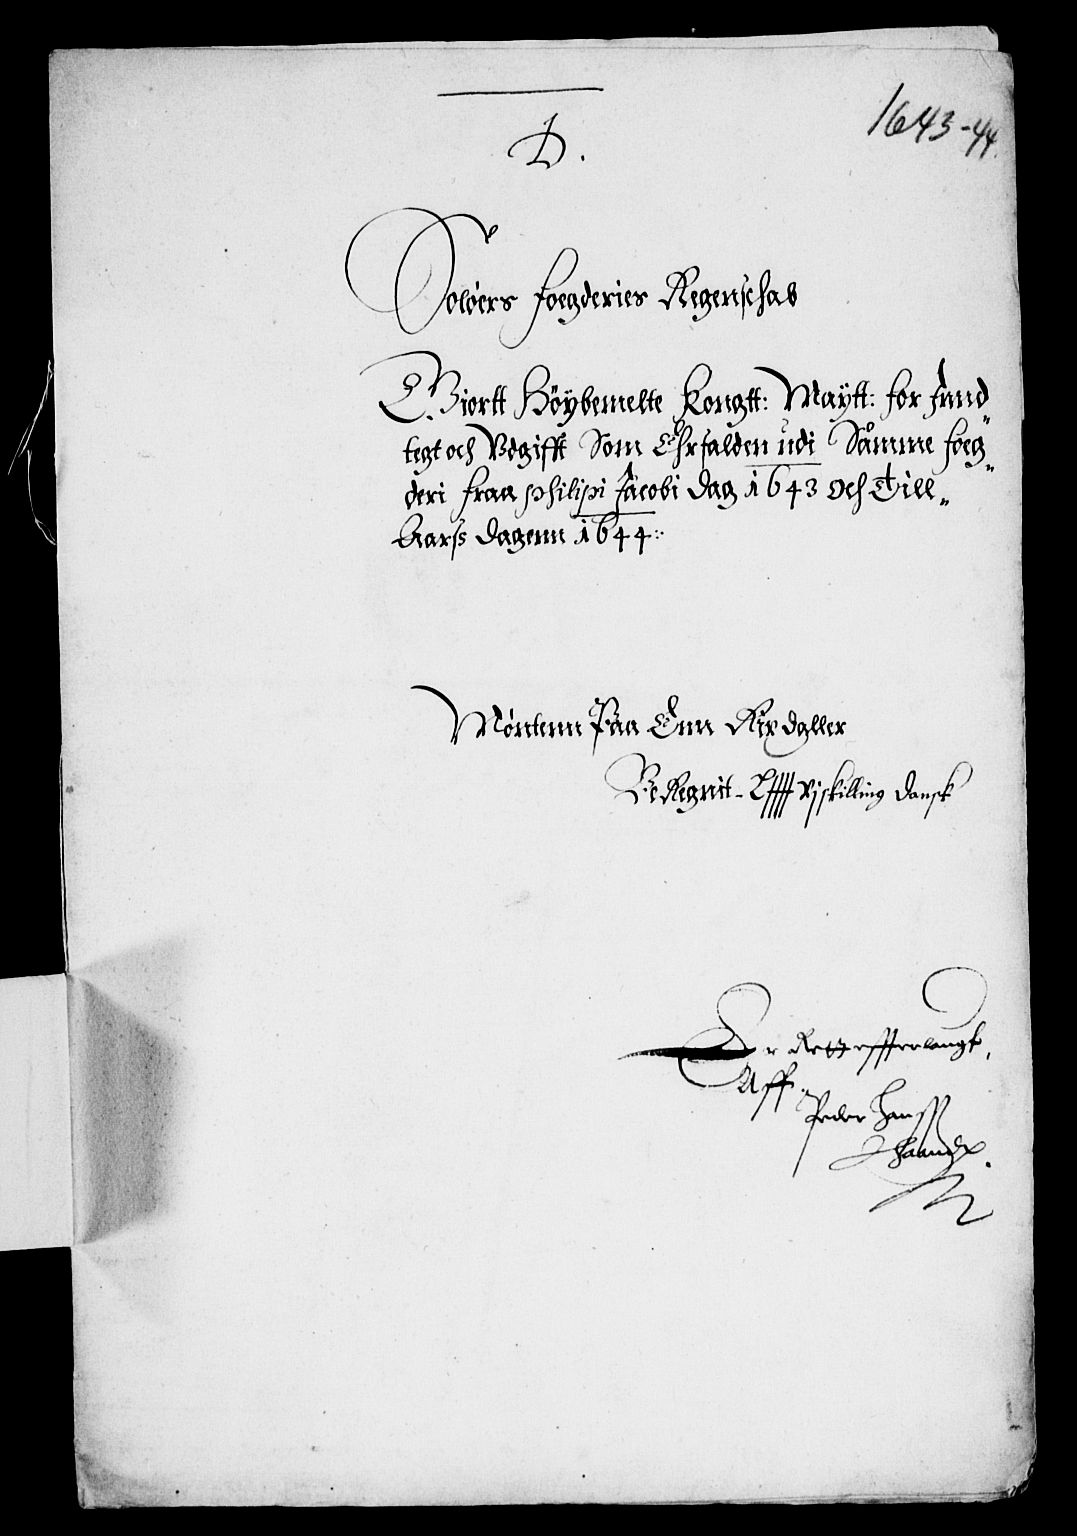 1643-44.
D.
Soløers foegderies Regenschab
Giortt Höybemelte Kongtt: Maytt: for Innd„
tegt och Vdgifft Som Ehrfalden udi Samme foeg„
deri fraa philipi Jacobi dag 1643 och Till„
Aarss dagenn 1644:
Møntenn Paa Enn Rixdaller
BeRegnit - Lxxxxvj skilling dansk
Er Rett effterlangt,
Aff.
Peder Hanss